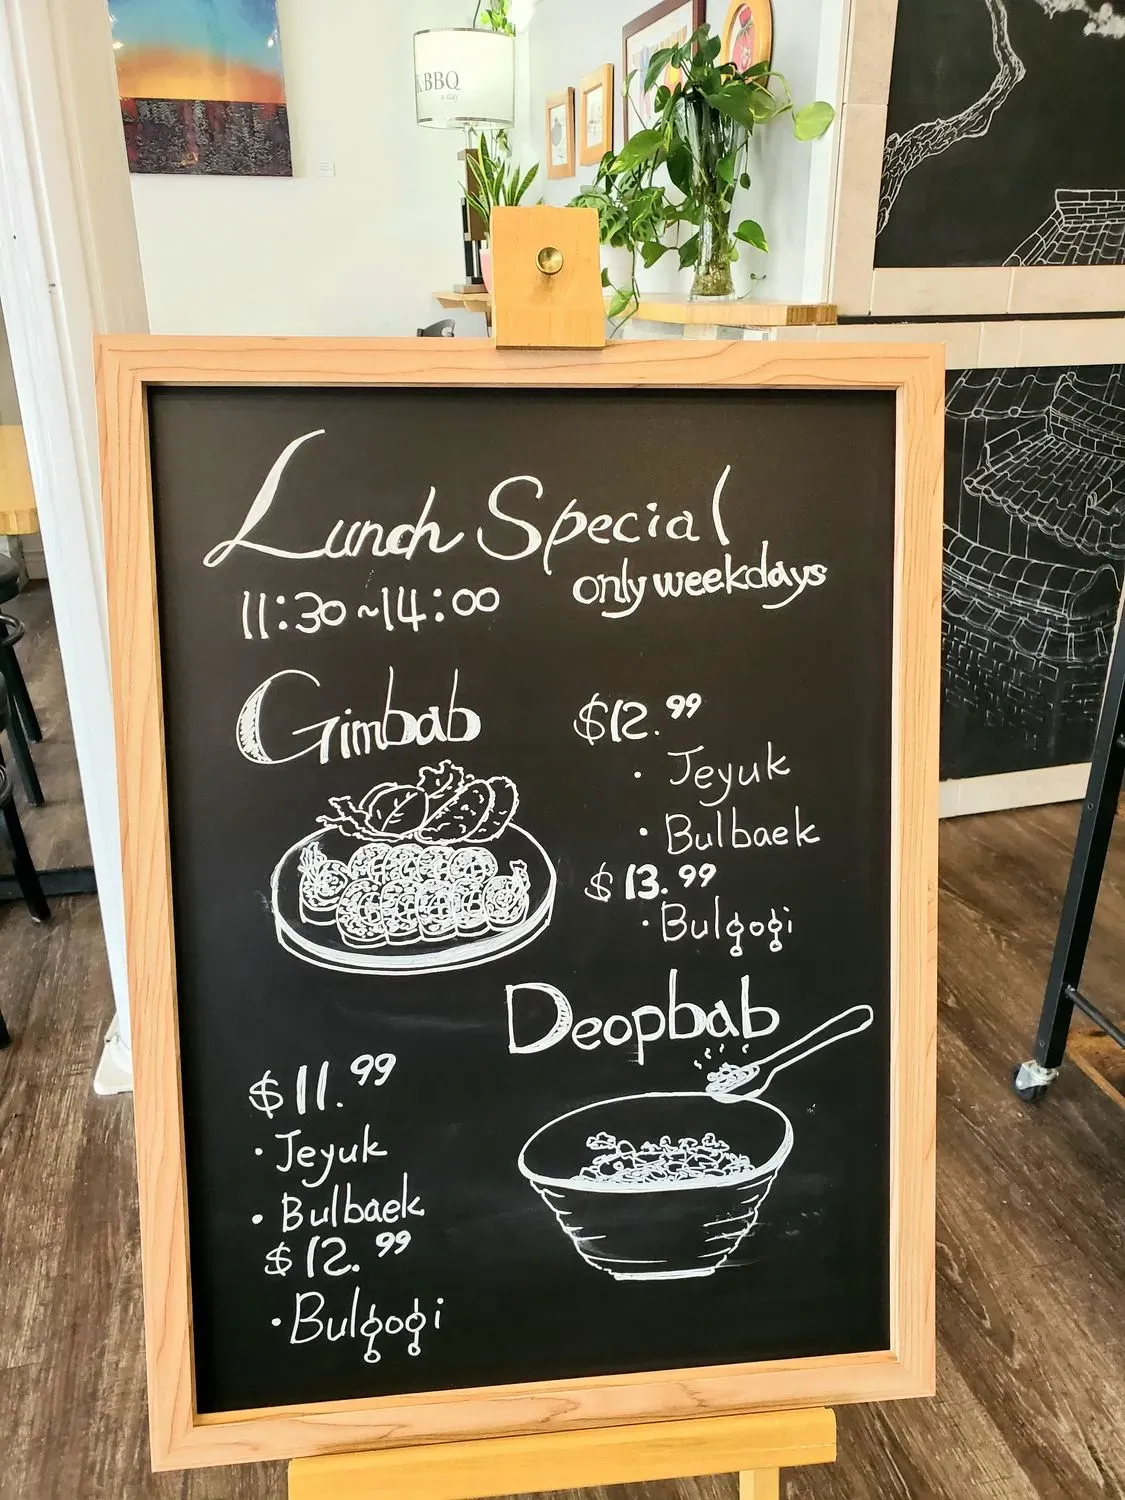 BBQ
a day
Lunch Special
only weekdays
11:30~14:00
Gimbab
$12.99
· Jeyuk
· Bulbaek
$13.99
· Bulgogi
Deopbab
$11.99
· Jeyuk
· Bulbaek
$12.99
· Bulgogi